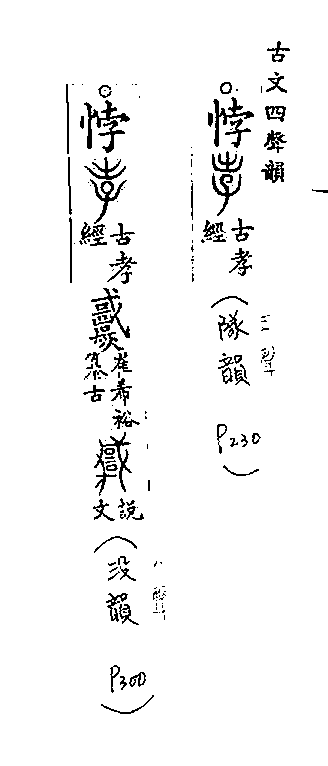 古文四聲韻
○悖 古孝經(隊韻 P230)
○悖 古孝經 崔希裕纂古 說文(没韻 P300)